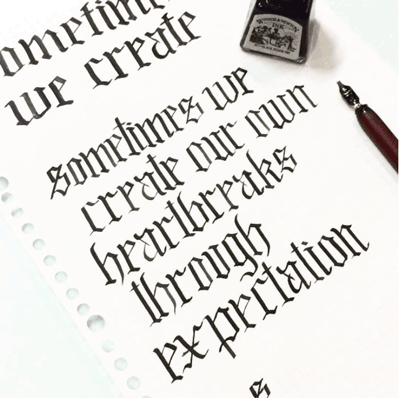 ometim
we create
WINSOR & NEWTON
INK
sometimes we
create our own
heartbreaks
through
expectation
s